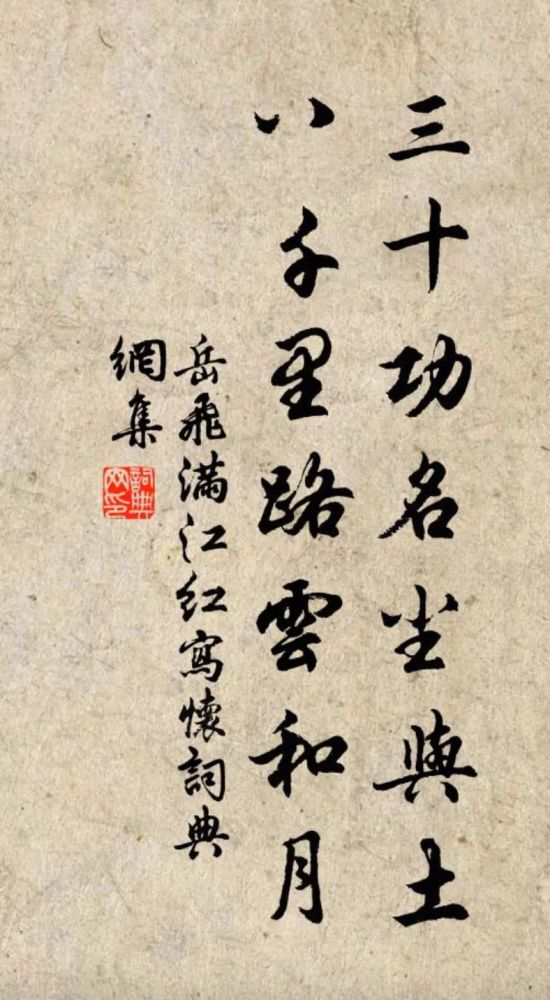 三十功名尘與土
八千里路雲和月
岳飛滿江紅寫懷詞典
網集
詞典網印